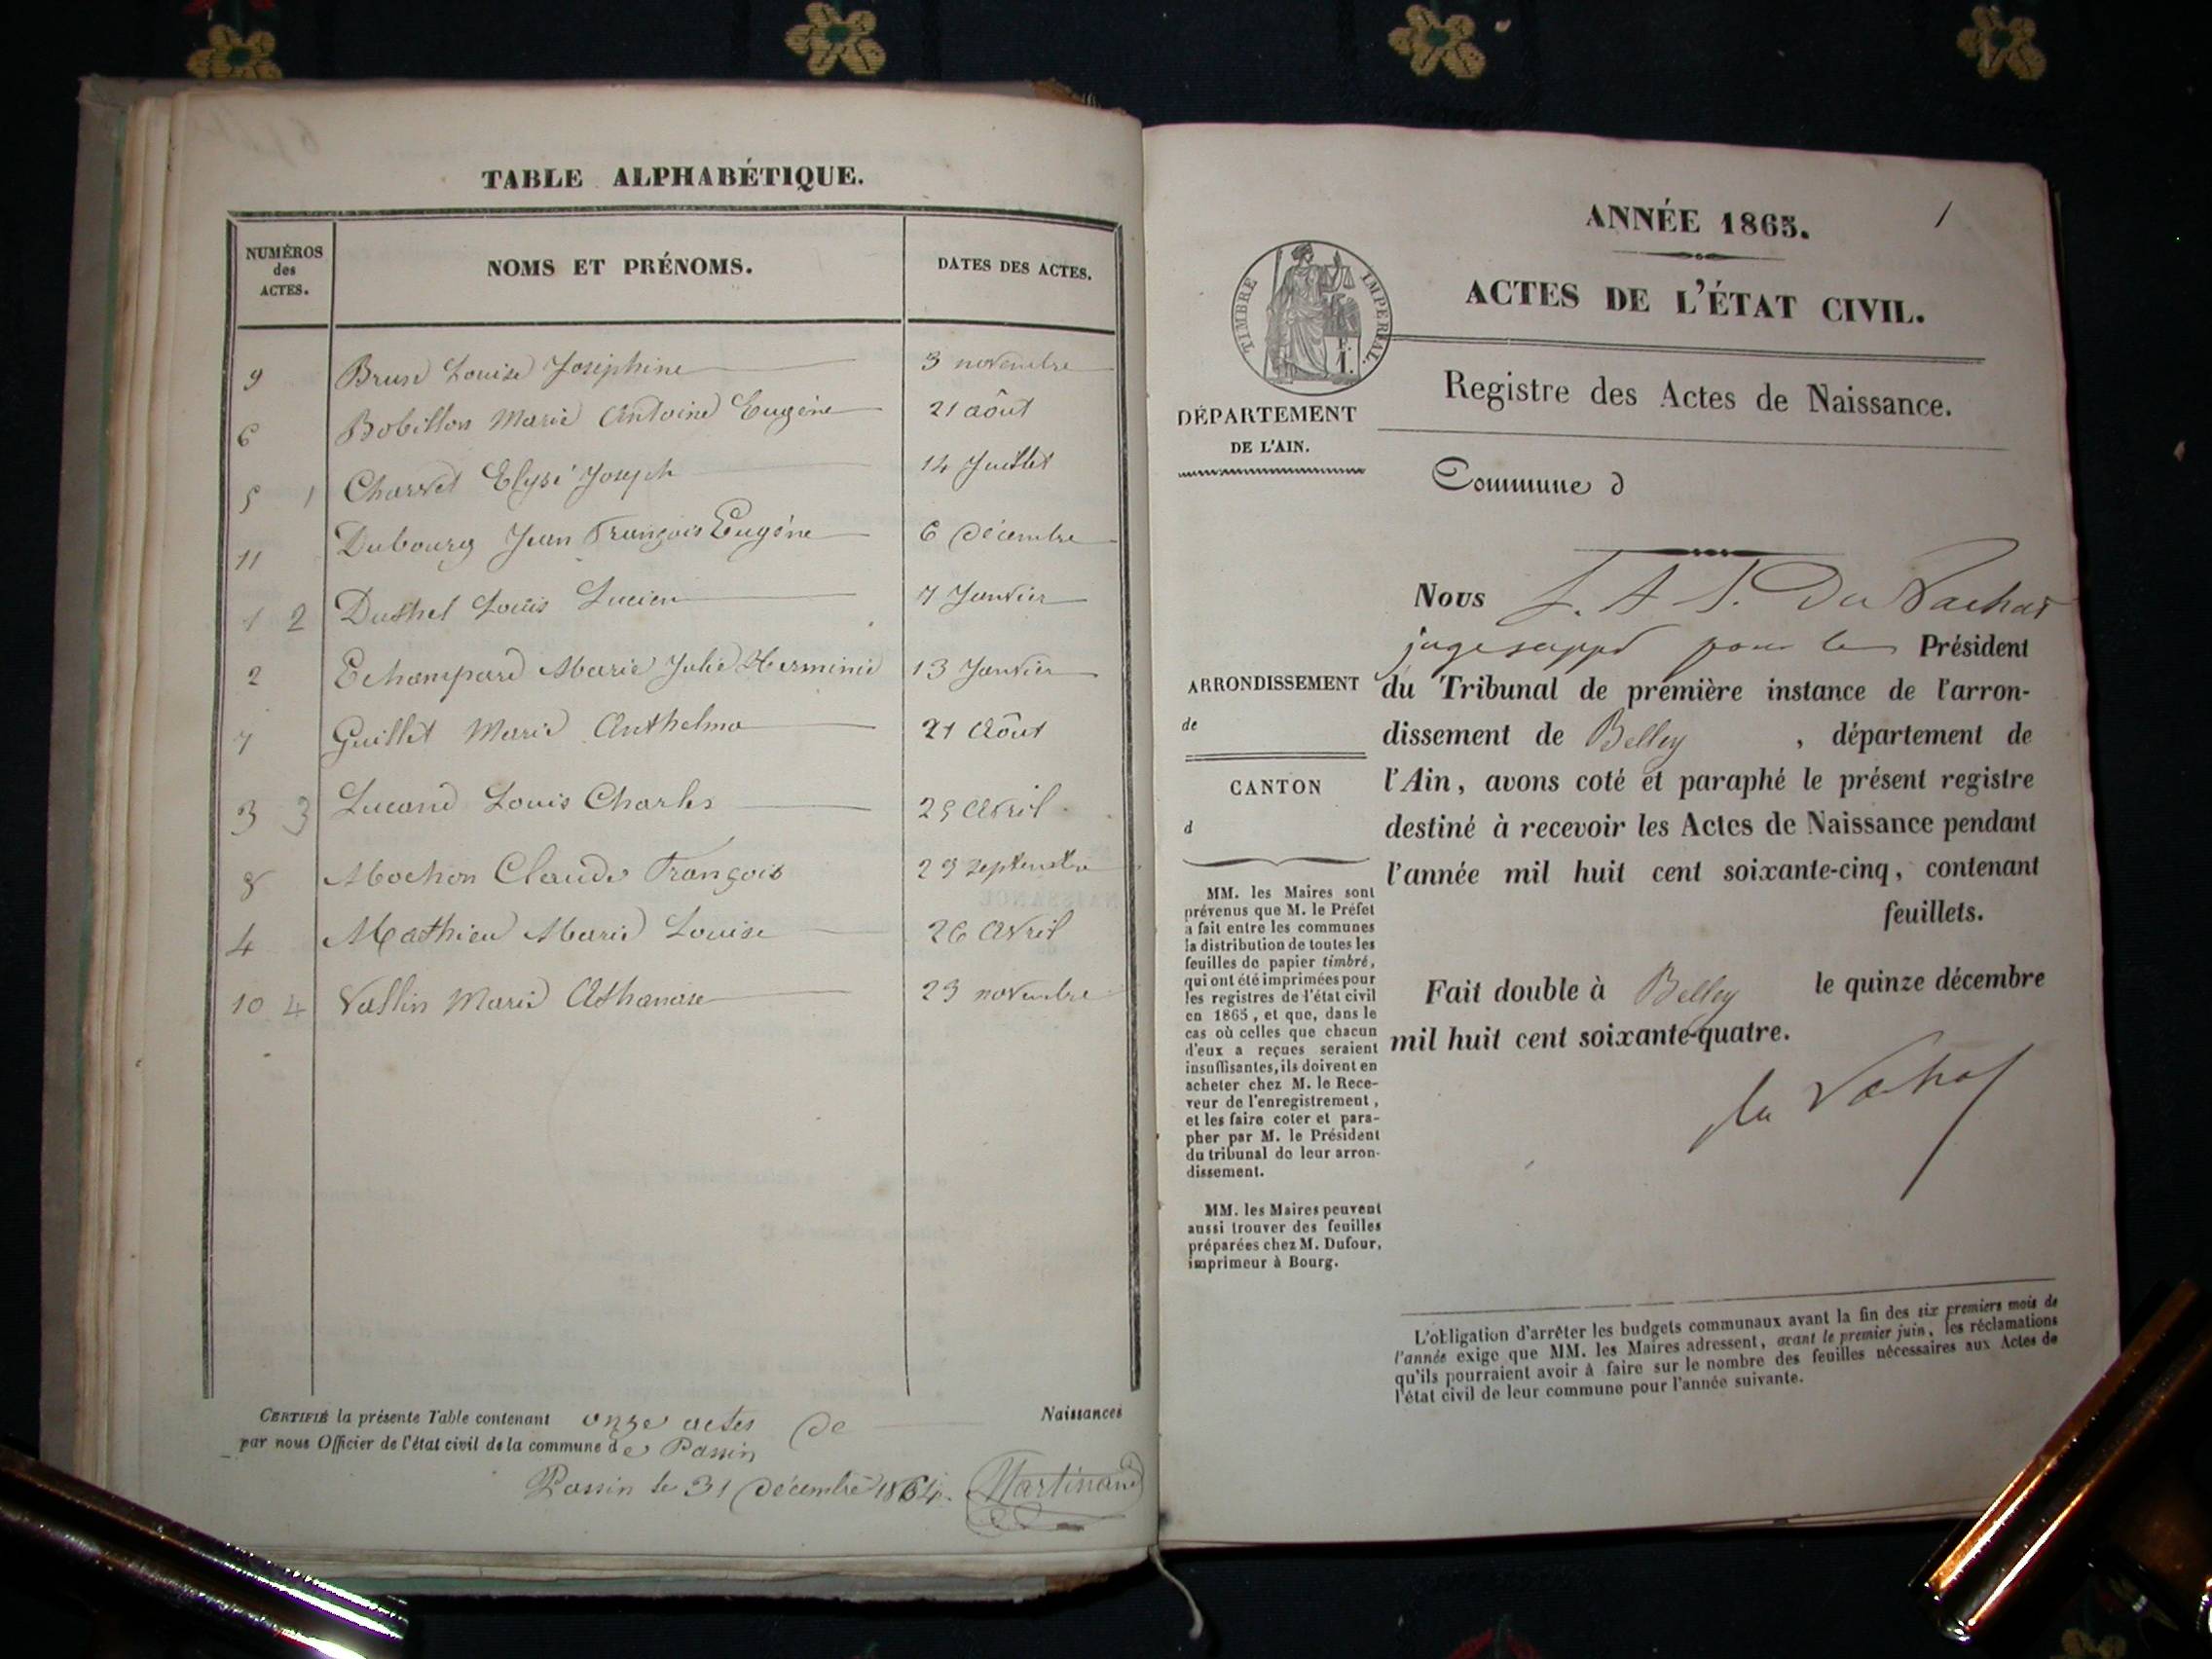 TABLE ALPHABÉTIQUE.
NUMÉROS
des
ACTES.
NOMS ET PRÉNOMS.
DATES DES ACTES.
9 Brun Louise Joséphine 3 novembre
6 Bobillon Marie Antoine Eugène 21 août
5 1 Charvet Elysé Joseph 14 Juillet
11 Dubourg Jean François Eugène 6 Décembre
1 2 Duthel Louis Lucien 7 Janvier
2 Echampard Marie Julie Herminie 13 Janvier
7 Guillet Marie Anthelma 21 Août
3 3 Lucand Louis Charles 25 Avril
8 Mochon Claude François 29 septembre
4 Mathieu Marie Louise 26 Avril
10 4 Vallin Marie Athanase 23 novembre
CERTIFIÉ la présente Table contenant onze actes de Naissances
par nous Officier de l'état civil de la commune de Passin
Passin le 31 Décembre 1864. Martinand
1
ANNÉE 1865.
ACTES DE L'ÉTAT CIVIL.
TIMBRE IMPÉRIAL.
Registre des Actes de Naissance.
DÉPARTEMENT
DE L'AIN.
Commune d
Nous Du Vachat
juge suppt pour le Président
du Tribunal de première instance de l'arron-
dissement de Belley , département de
l'Ain, avons coté et paraphé le présent registre
destiné à recevoir les Actes de Naissance pendant
l'année mil huit cent soixante-cinq, contenant
feuillets.
Fait double à Belley le quinze décembre
mil huit cent soixante-quatre.
du Vachat
ARRONDISSEMENT
de
CANTON
d
MM. les Maires sont
prévenus que M. le Préfet
a fait entre les communes
la distribution de toutes les
feuilles de papier timbré,
qui ont été imprimées pour
les registres de l'état civil
en 1865, et que, dans le
cas où celles que chacun
d'eux a reçues seraient
insuffisantes, ils doivent en
acheter chez M. le Rece-
veur de l'enregistrement,
et les faire coter et para-
pher par M. le Président
du tribunal de leur arron-
dissement.
MM. les Maires peuvent
aussi trouver des feuilles
préparées chez M. Dufour,
imprimeur à Bourg.
L'obligation d'arrêter les budgets communaux avant la fin des six premiers mois de
l'année exige que MM. les Maires adressent, avant le premier juin, les réclamations
qu'ils pourraient avoir à faire sur le nombre des feuilles nécessaires aux Actes de
l'état civil de leur commune pour l'année suivante.